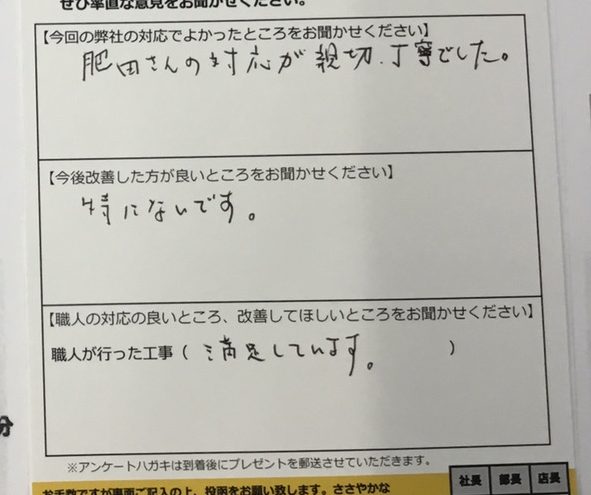 ぜひ率直な意見をお聞かせください。
【今回の弊社の対応でよかったところをお聞かせください】
肥田さんの対応が親切、丁寧でした。
【今後改善した方が良いところをお聞かせください】
特にないです。
【職人の対応の良いところ、改善してほしいところをお聞かせください】
職人が行った工事（ 満足しています。 ）
※アンケートハガキは到着後にプレゼントを郵送させていただきます。
分
社長 部長 店長
お手数ですが裏面ご記入の上、投函をお願い致します。ささやかな